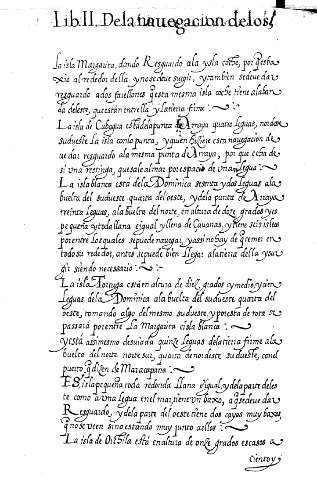 Lib. II. De la nauegacion de los
la isla Margarita, dando Resguardo a la ysla coche, por q̃ es ba
xia al rededor della y no se deue surgir, y tambien se deue dar
resguardo a dos farellones q̃ esta mesma isla coche tiene a la bar
da del este, que están entrella y la tierra firme
La isla de Cubagua está de la punta de Arraya quatro leguas, nordeste
sudueste la isla con la punta, y quien hiziere esta nauegacion de
ue dar resguardo ala mesma punta de Araya, por que echa de
si una restinga, que sale al mar por espacio de una legua
La isla blanca está dela Dominica setenta y dos leguas ala
buelta del sudueste quarta del oeste, y dela punta de Araya
treinta leguas, ala buelta del norte, en altura de doze grados y es
pequeña y toda llana e ygual y llena de Cauanas, y tiene seis isleos
por entre los quales se puede nauegar, y assi no hay q̃ temer en
todo su rededor, antes se puede bien llegar a la tierra della y sur
gir siendo necessario
La isla Tortuga está en altura de diez grados y medio, y cien
leguas dela Dominica ala buelta del sudueste quarta del
oeste, tomando algo del mesmo sudueste, y por esta derrota se
passará por entre La Margarita e isla blanca
y está assi mesmo desuiada quinze leguas dela tierra firme ala
buelta del norte norte sur, quarta de nordeste sudueste, con el
puerto q̃ dizen de Maracapana
Es isla pequeña toda redonda llana e ygual, y dela parte del es
te como a una legua en el mar, tiene un baxo, a q̃ se deue dar
Resguardo, y dela parte del oeste tiene dos cayos muy baxos,
que no se veen sino estando muy junto a ellos
La isla de Orchila está en altura de onze grados escasos a
ciento y